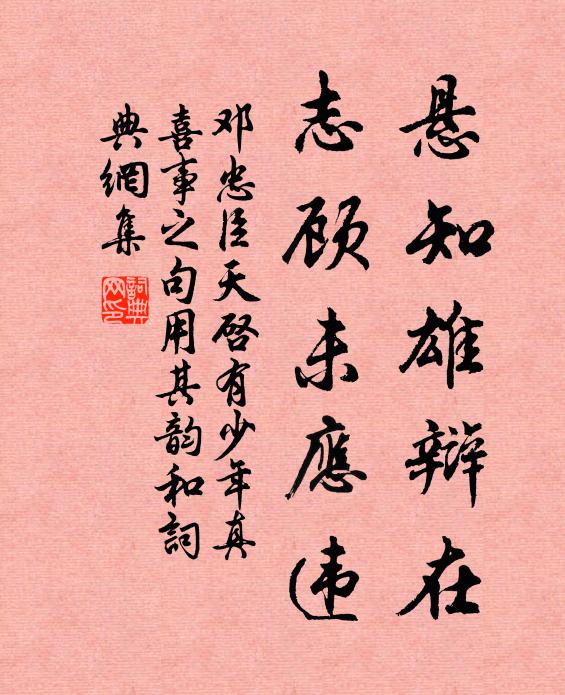 悬知雄辩在
志顾未應违
邓忠臣天启有少年真
喜事之句用其韵和詞
典網集
詞典网印